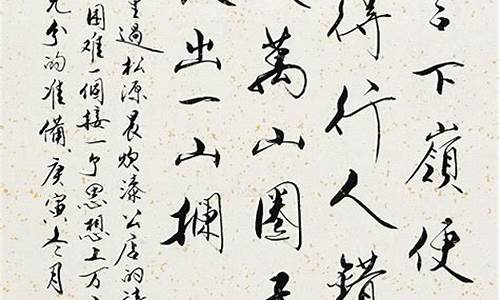 言下嶺便
得行人錯
萬山圈子
出一山攔
里過松源晨炊漆公店的詩
困難一個接一个思想上万
充分的准備庚寅冬月